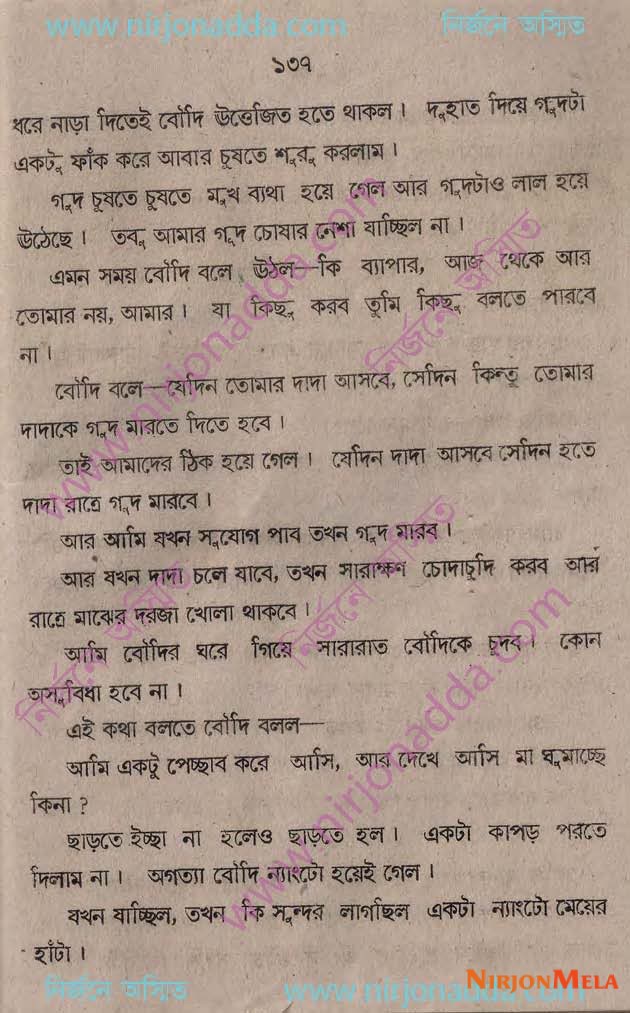 www.nirjonadda.com নির্জনে অস্মিত
১৩৭
ধরে নাড়া দিতেই বৌদি উত্তেজিত হতে থাকল। দুহাত দিয়ে গুদটা
একটু ফাঁক করে আবার চুষতে শুরু করলাম।
গুদ চুষতে চুষতে মুখ ব্যথা হয়ে গেল আর গুদটাও লাল হয়ে
উঠেছে। তবু আমার গুদ চোষার নেশা যাচ্ছিল না।
এমন সময় বৌদি বলে উঠল—কি ব্যাপার, আজ থেকে আর
তোমার নয়, আমার। যা কিছু করব তুমি কিছু বলতে পারবে
না।
বৌদি বলে—যেদিন তোমার দাদা আসবে, সেদিন কিন্তু তোমার
দাদাকে গুদ মারতে দিতে হবে।
তাই আমাদের ঠিক হয়ে গেল। যেদিন দাদা আসবে সেদিন হতে
দাদা রাত্রে গুদ মারবে।
আর আমি যখন সুযোগ পাব তখন গুদ মারব।
আর যখন দাদা চলে যাবে, তখন সারাক্ষণ চোদাচুদি করব আর
রাত্রে মাঝের দরজা খোলা থাকবে।
আমি বৌদির ঘরে গিয়ে সারারাত বৌদিকে চুদব। কোন
অসুবিধা হবে না।
এই কথা বলতে বৌদি বলল—
আমি একটু পেচ্ছাব করে আসি, আর দেখে আসি মা ঘুমাচ্ছে
কিনা?
ছাড়তে ইচ্ছা না হলেও ছাড়তে হল। একটা কাপড় পরতে
দিলাম না। অগত্যা বৌদি ন্যাংটো হয়েই গেল।
যখন যাচ্ছিল, তখন কি সুন্দর লাগছিল একটা ন্যাংটো মেয়ের
হাঁটা।
NIRJONMELA
নির্জনে অস্মিত www.nirjonadda.com
www.nirjonadda.com
নির্জনে অস্মিত
নির্জনে অস্মিত
নির্জনে অস্মিত
www.nirjonadda.com